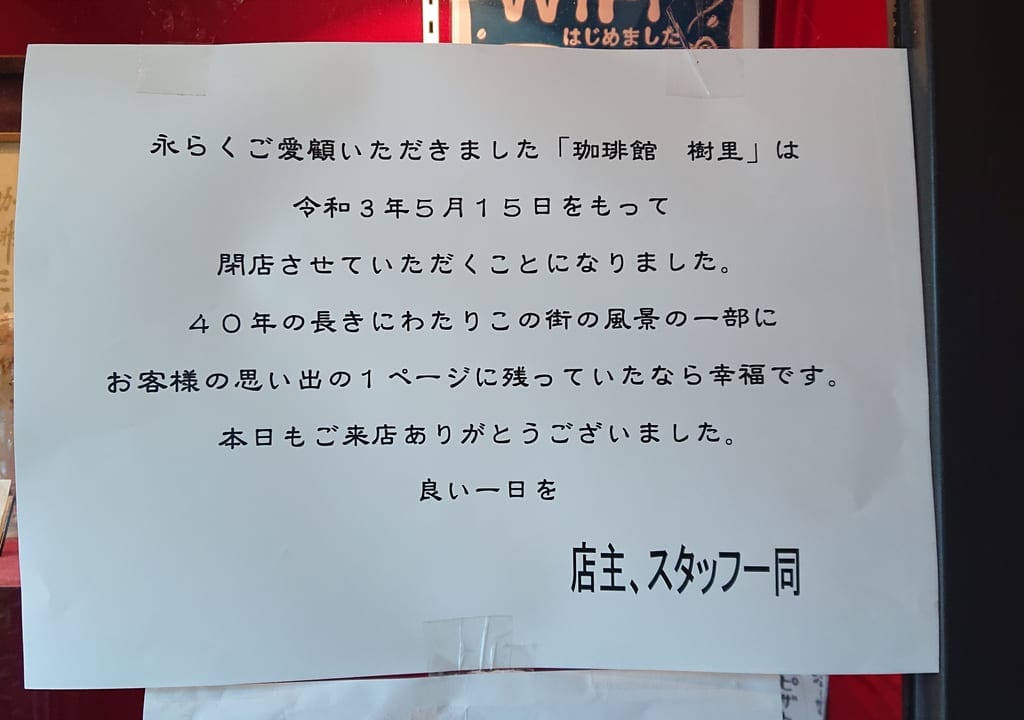 WiFi
はじめました
永らくご愛顧いただきました「珈琲館　樹里」は
令和３年５月１５日をもって
閉店させていただくことになりました。
４０年の長きにわたりこの街の風景の一部に
お客様の思い出の１ページに残っていたなら幸福です。
本日もご来店ありがとうございました。
良い一日を
店主、スタッフ一同
ピザト